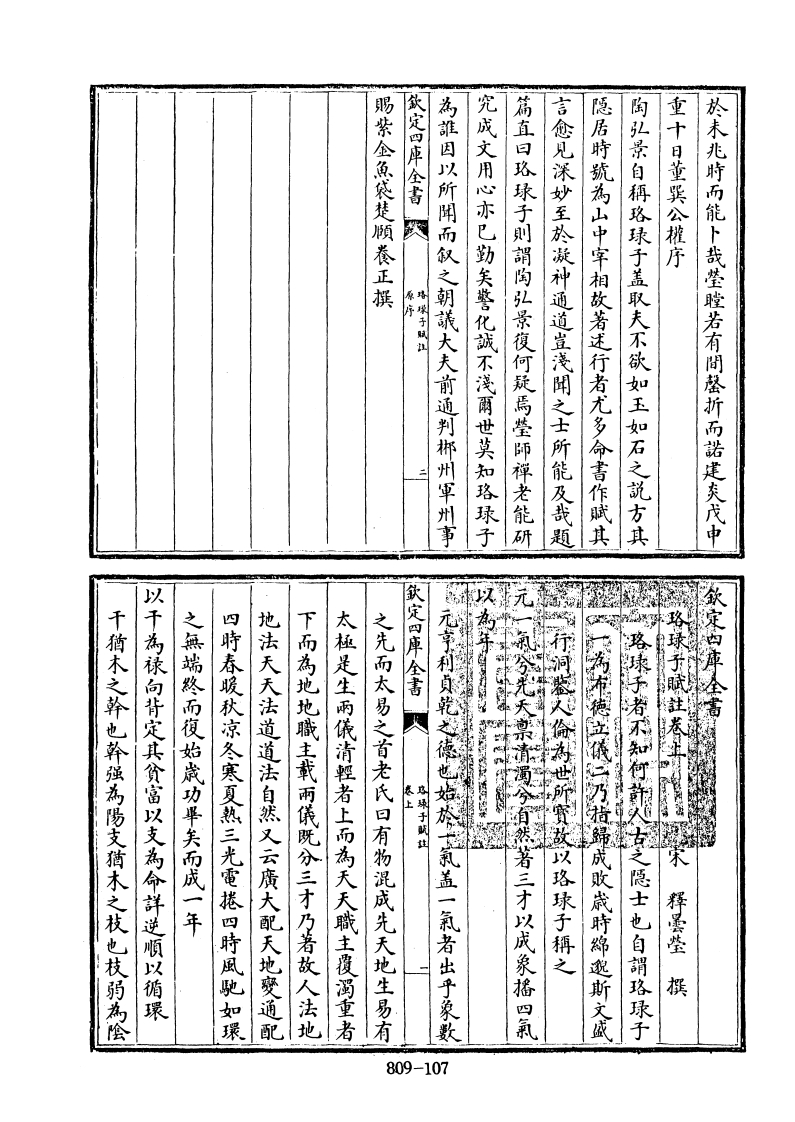 於未兆時而能卜哉瑩瞠若有間罄折而諾建炎戊申
重十日董巽公權序
陶弘景自稱珞琭子盖取夫不欲如玉如石之説方其
隠居時號為山中宰相故著述行者尤多命書作賦其
言愈見深妙至於凝神通道豈淺聞之士所能及哉題
篇直曰珞琭子則謂陶弘景復何疑焉瑩師禪老能研
究成文用心亦已勤矣警化誠不淺爾世莫知珞琭子
為誰因以所聞而叙之朝議大夫前通判郴州軍州事
欽定四庫全書
珞琭子賦註
原序
二
賜紫金魚袋楚頤養正撰
欽定四庫全書
珞琭子賦註卷上
宋 釋曇瑩 撰
珞琭子者不知何許人古之隠士也自謂珞琭子
一為布徳立儀二乃指歸成敗歳時綿邈斯文盛
行洞鑒人倫為世所寳故以珞琭子稱之
元一氣兮先天禀清濁兮自然著三才以成象播四氣
以為年
元亨利貞乾之徳也始於一氣盖一氣者出乎象數
欽定四庫全書
珞琭子賦註
卷上
一
之先而太易之首老氏曰有物混成先天地生易有
太極是生兩儀清輕者上而為天天職主覆濁重者
下而為地地職主載兩儀既分三才乃著故人法地
地法天天法道道法自然又云廣大配天地變通配
四時春暖秋凉冬寒夏熱三光電捲四時風馳如環
之無端終而復始歳功畢矣而成一年
以干為禄向背定其貧富以支為命詳逆順以循環
干猶木之幹也幹强為陽支猶木之枝也枝弱為陰
809-107